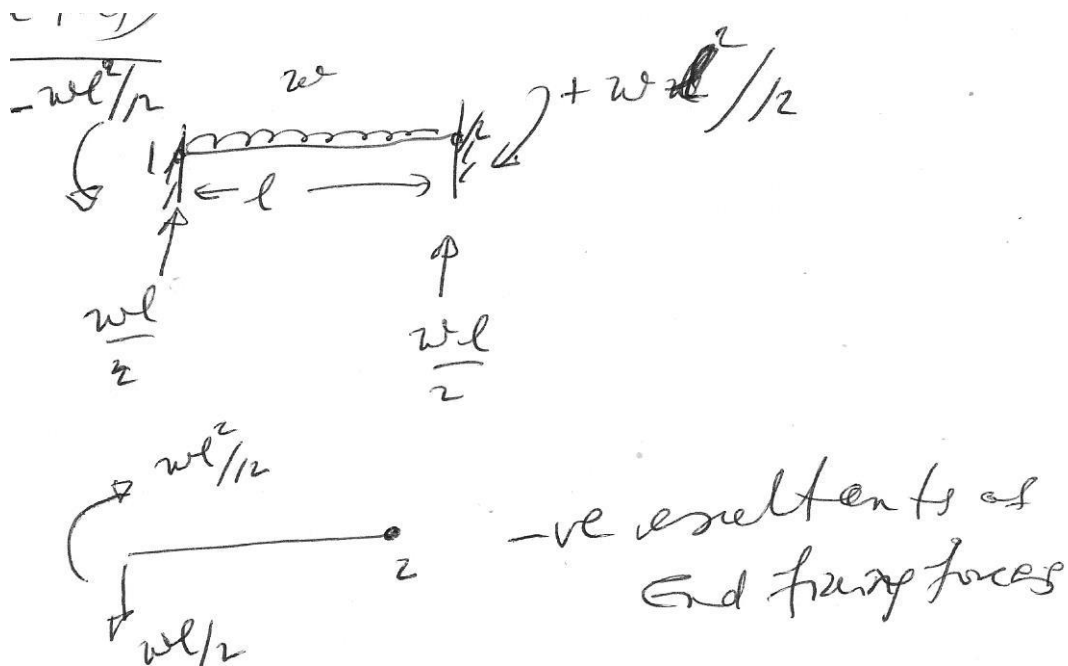 -wl²/12
w
+ w l²/12
1
2
← l →
wl/2
wl/2
wl²/12
2
-ve resultants of
End fixing forces
wl/2